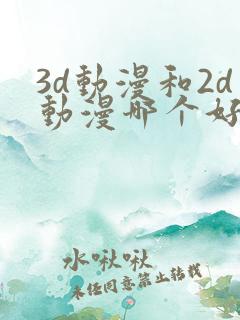 3d動漫和2d
動漫哪个好
水啾啾
未经同意禁止转载